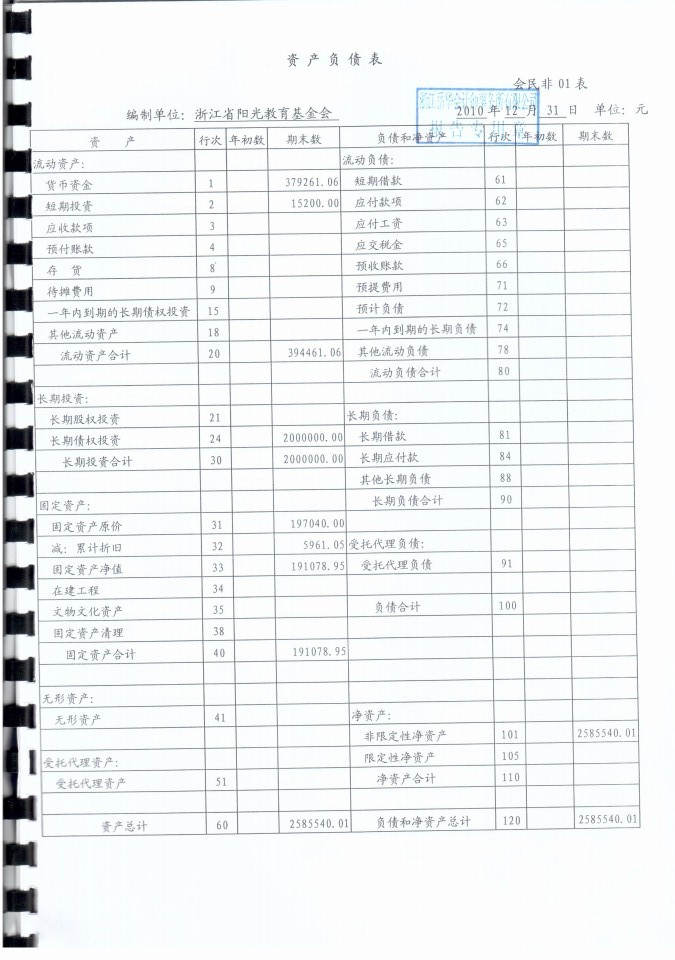 资产负债表
会民非 01 表
编制单位：浙江省阳光教育基金会 2010 年 12 月 31 日 单位：元
资 产 行次 年初数 期末数 负债和净资产 行次 年初数 期末数
流动资产： 流动负债：
货币资金 1 379261.06 短期借款 61
短期投资 2 15200.00 应付款项 62
应收款项 3 应付工资 63
预付账款 4 应交税金 65
存 货 8 预收账款 66
待摊费用 9 预提费用 71
一年内到期的长期债权投资 15 预计负债 72
其他流动资产 18 一年内到期的长期负债 74
流动资产合计 20 394461.06 其他流动负债 78
流动负债合计 80
长期投资：
长期股权投资 21 长期负债：
长期债权投资 24 2000000.00 长期借款 81
长期投资合计 30 2000000.00 长期应付款 84
其他长期负债 88
固定资产： 长期负债合计 90
固定资产原价 31 197040.00
减：累计折旧 32 5961.05 受托代理负债：
固定资产净值 33 191078.95 受托代理负债 91
在建工程 34
文物文化资产 35 负债合计 100
固定资产清理 38
固定资产合计 40 191078.95
无形资产：
无形资产 41 净资产：
非限定性净资产 101 2585540.01
受托代理资产： 限定性净资产 105
受托代理资产 51 净资产合计 110
资产总计 60 2585540.01 负债和净资产总计 120 2585540.01
报告专用章